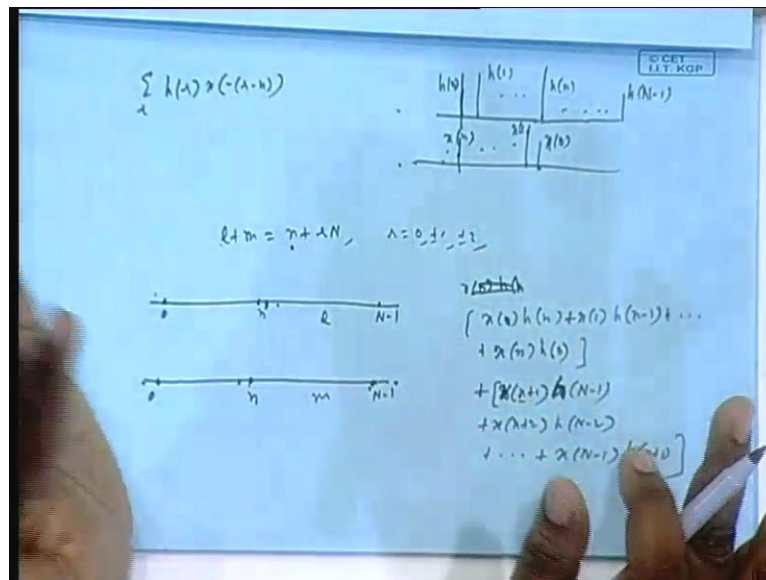 © CET
I.I.T. KGP
Σ h(r) x(-(r-n))
r
h(0) h(1) ... h(n) ... h(N-1)
x(n) ... x(1) x(0)
l+m = n+rN, r = 0, ±1, ±2,
0 n l N-1
0 n m N-1
[x(0)h(n)+x(1)h(n-1)+...
+ x(n)h(0)]
+[x(n+1)h(N-1)
+x(n+2)h(N-2)
+ ... + x(N-1)